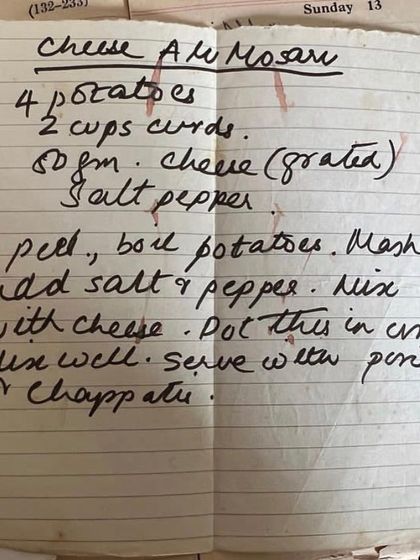 (132-233)
Sunday 13
Cheese Alu Mosaru
4 potatoes
2 cups curds.
50 gm. cheese (grated)
Salt pepper.
peel, boil potatoes. Mash
add salt & pepper. Mix
with cheese. Put this in
Mix well. Serve with
Chappatis.